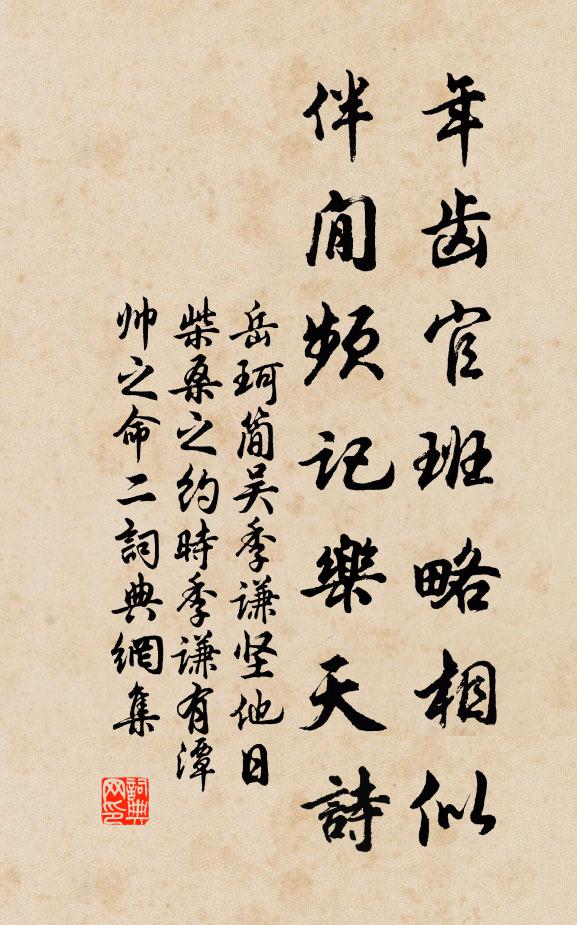 年齿官班略相似
伴閒频记樂天詩
岳珂简吴季谦坚他日
柴桑之约時季谦有潭
帅之命二詞典網集
詞典网印